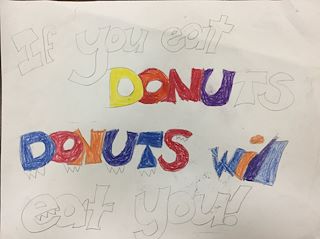 If you eat
DONUTS
DONUTS will
eat you!